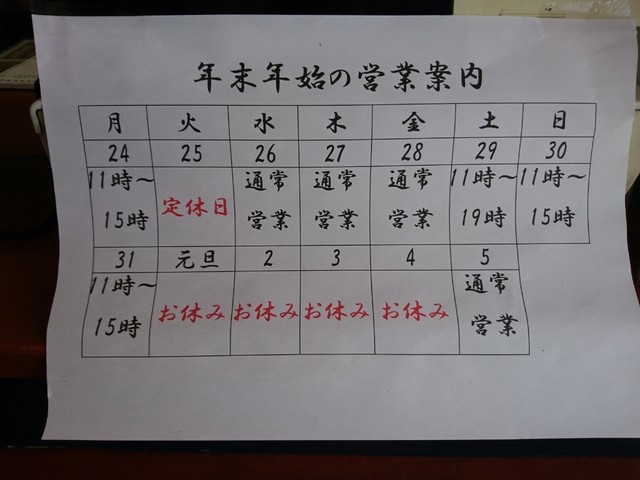 年末年始の営業案内
月 火 水 木 金 土 日
24 25 26 27 28 29 30
11時～ 定休日 通常 通常 通常 11時～ 11時～
15時 営業 営業 営業 19時 15時
31 元旦 2 3 4 5
11時～ お休み お休み お休み お休み 通常
15時 営業